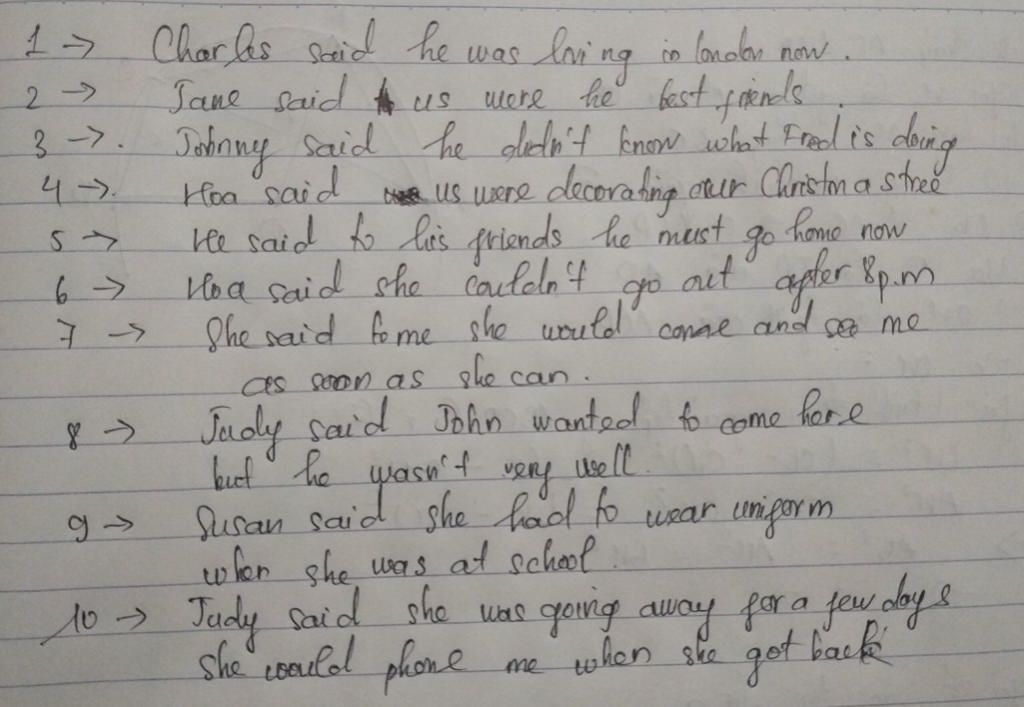 1 → Charles said he was living in london now.
2 → Jane said us were he best friends.
3 →. Johnny said he didn't know what Fred is doing
4 →. Hoa said us were decorating our Christmastree
5 → He said to his friends he must go home now
6 → Hoa said she couldn't go out after 8p.m
7 → She said to me she would come and see me
as soon as she can.
8 → Judy said John wanted to come here
but he wasn't very well.
9 → Susan said she had to wear uniform
when she was at school.
10 → Judy said she was going away for a few days
She would phone me when she got back